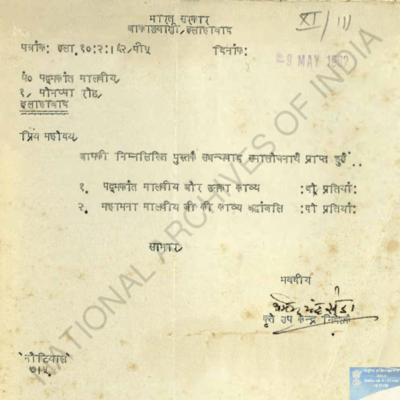 भारत सरकार
आकाशवाणी, इलाहाबाद
XI/III
पत्रांक: इला.१०:२:।६२,पी५ दिनांक:
9 MAY 1962
पं० पद्मकांत मालवीय,
१, पोनप्पा रोड,
इलाहाबाद
प्रिय महोदय,
आपकी निम्नलिखित पुस्तकें सधन्यवाद समालोचनार्थ प्राप्त हुईं ..
१. पद्मकांत मालवीय और उनका काव्य :दो प्रतियां:
२. महामना मालवीय जी को काव्य श्रद्धांजलि :दो प्रतियां:
साभार,
भवदीय
कृते उप केन्द्र निदेशक
नौटियाल
७।५.
NATIONAL ARCHIVES OF INDIA